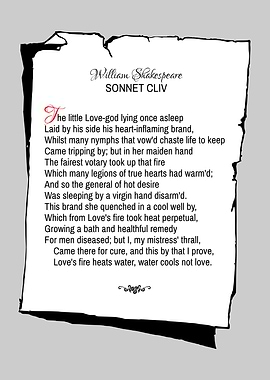 William Shakespeare
SONNET CLIV
The little Love-god lying once asleep
Laid by his side his heart-inflaming brand,
Whilst many nymphs that vow'd chaste life to keep
Came tripping by; but in her maiden hand
The fairest votary took up that fire
Which many legions of true hearts had warm'd;
And so the general of hot desire
Was sleeping by a virgin hand disarm'd.
This brand she quenched in a cool well by,
Which from Love's fire took heat perpetual,
Growing a bath and healthful remedy
For men diseased; but I, my mistress' thrall,
Came there for cure, and this by that I prove,
Love's fire heats water, water cools not love.